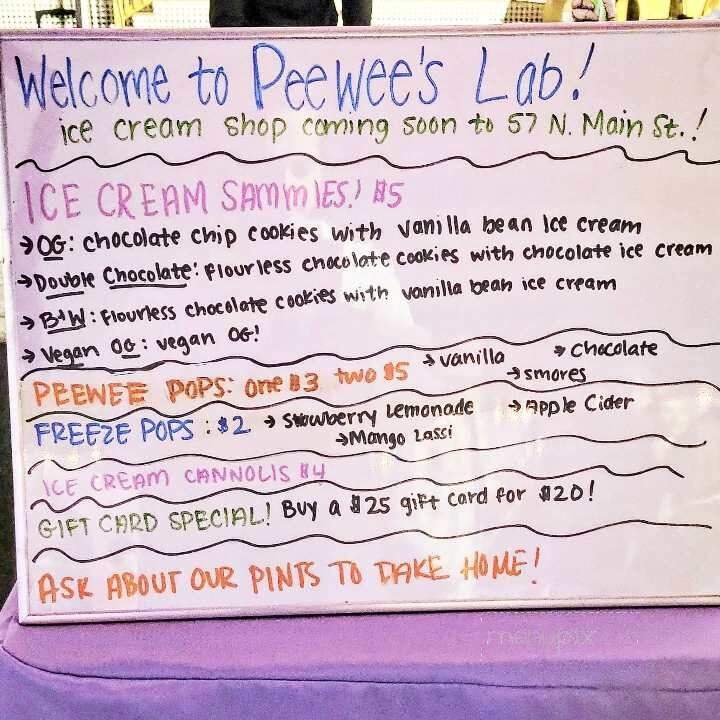 Welcome to PeeWee's Lab!
ice cream shop coming soon to 57 N. Main St.!
ICE CREAM SAMMIES! $5
→ OG: chocolate chip cookies with vanilla bean Ice cream
→ Double Chocolate: flourless chocolate cookies with chocolate ice cream
→ B+W: flourless chocolate cookies with vanilla bean ice cream
→ Vegan OG: vegan OG!
PEEWEE POPS: one $3 two $5 → vanilla → Chocolate
→ smores
FREEZE POPS: $2 → Strawberry Lemonade → Apple Cider
→ Mango Lassi
ICE CREAM CANNOLIS $4
GIFT CARD SPECIAL! Buy a $25 gift card for $20!
ASK ABOUT OUR PINTS TO TAKE HOME!
menupix